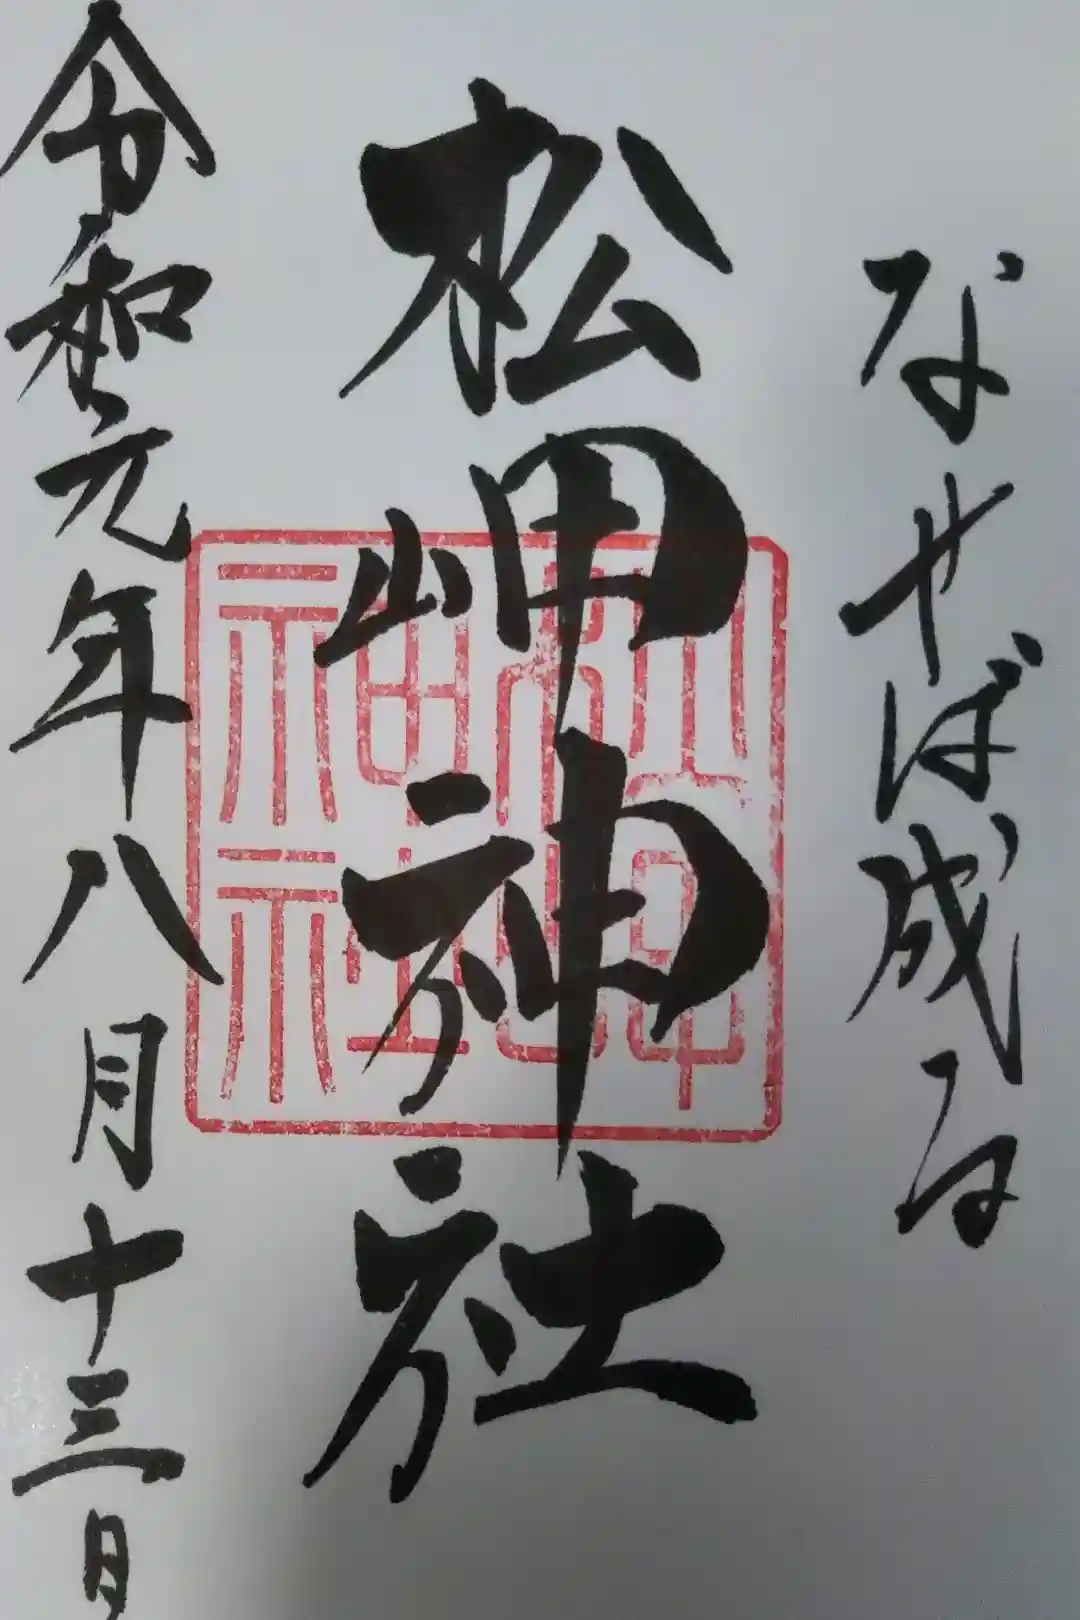 なせば成る
松岬神社
松岬神社
令和元年八月十三日